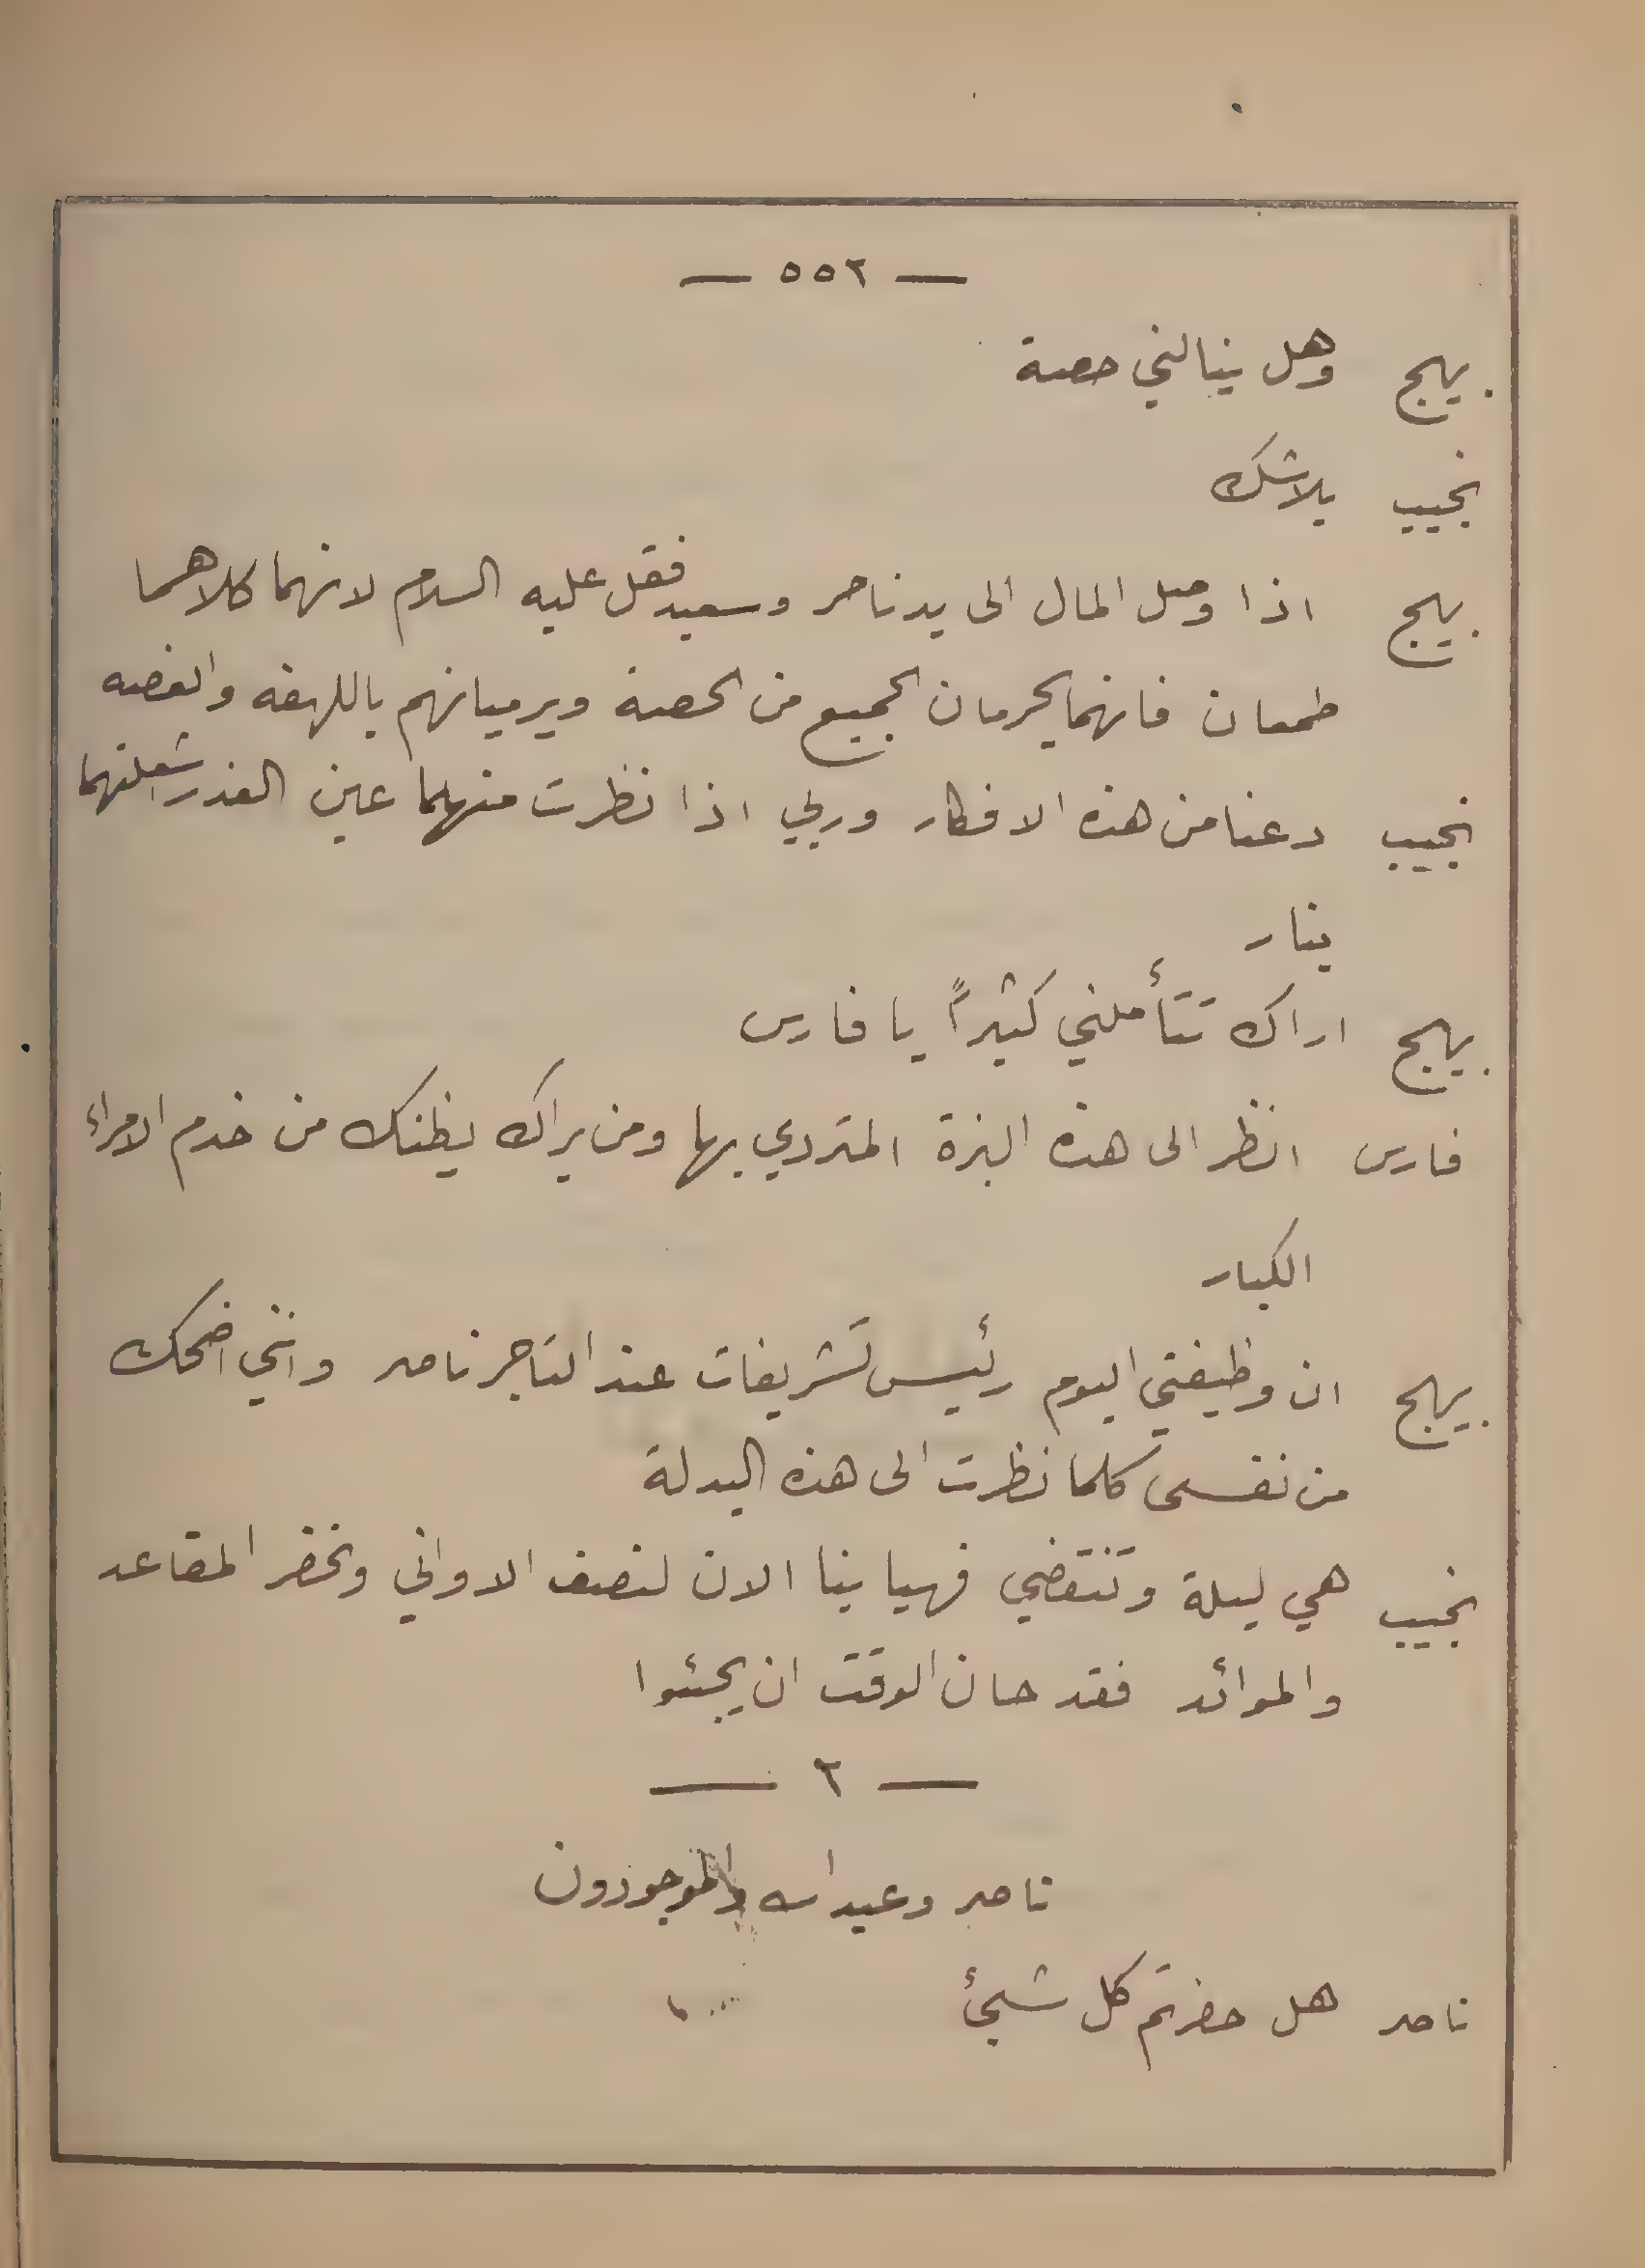 — ٥٥٢ —
بهيج وهل ينالني حصة
نجيب بلاشك
بهيج اذا وصل المال الى يد ناصر وسعيد فقل عليه السلام لانهما كلاهما
طمعان فانهما يحرمان الجميع من الحصة ويرميانهم باللهفه والغصه
نجيب دعنا من هذه الافكار وربي اذا نظرت منهما عين الغدر اشعلتهما
بنار
بهيج اراك تتأملني كثيراً يا فارس
فارس انظر الى هذه البزة المتردي بها ومن يراك يظنك من خدم الامراء
الكبار
بهيج ان وظيفتي اليوم رئيس تشريفات عند التاجر ناصر وانني اضحك
من نفسى كلما نظرت الى هذه البدلة
نجيب هي ليلة وتنقضي فهيا بنا الان لنصف الاواني ونحضر المقاعد
والموائد فقد حان الوقت ان يجئوا
— ٢ —
ناصر وعبد الله والموجودون
ناصر هل حضرتم كل شيئ